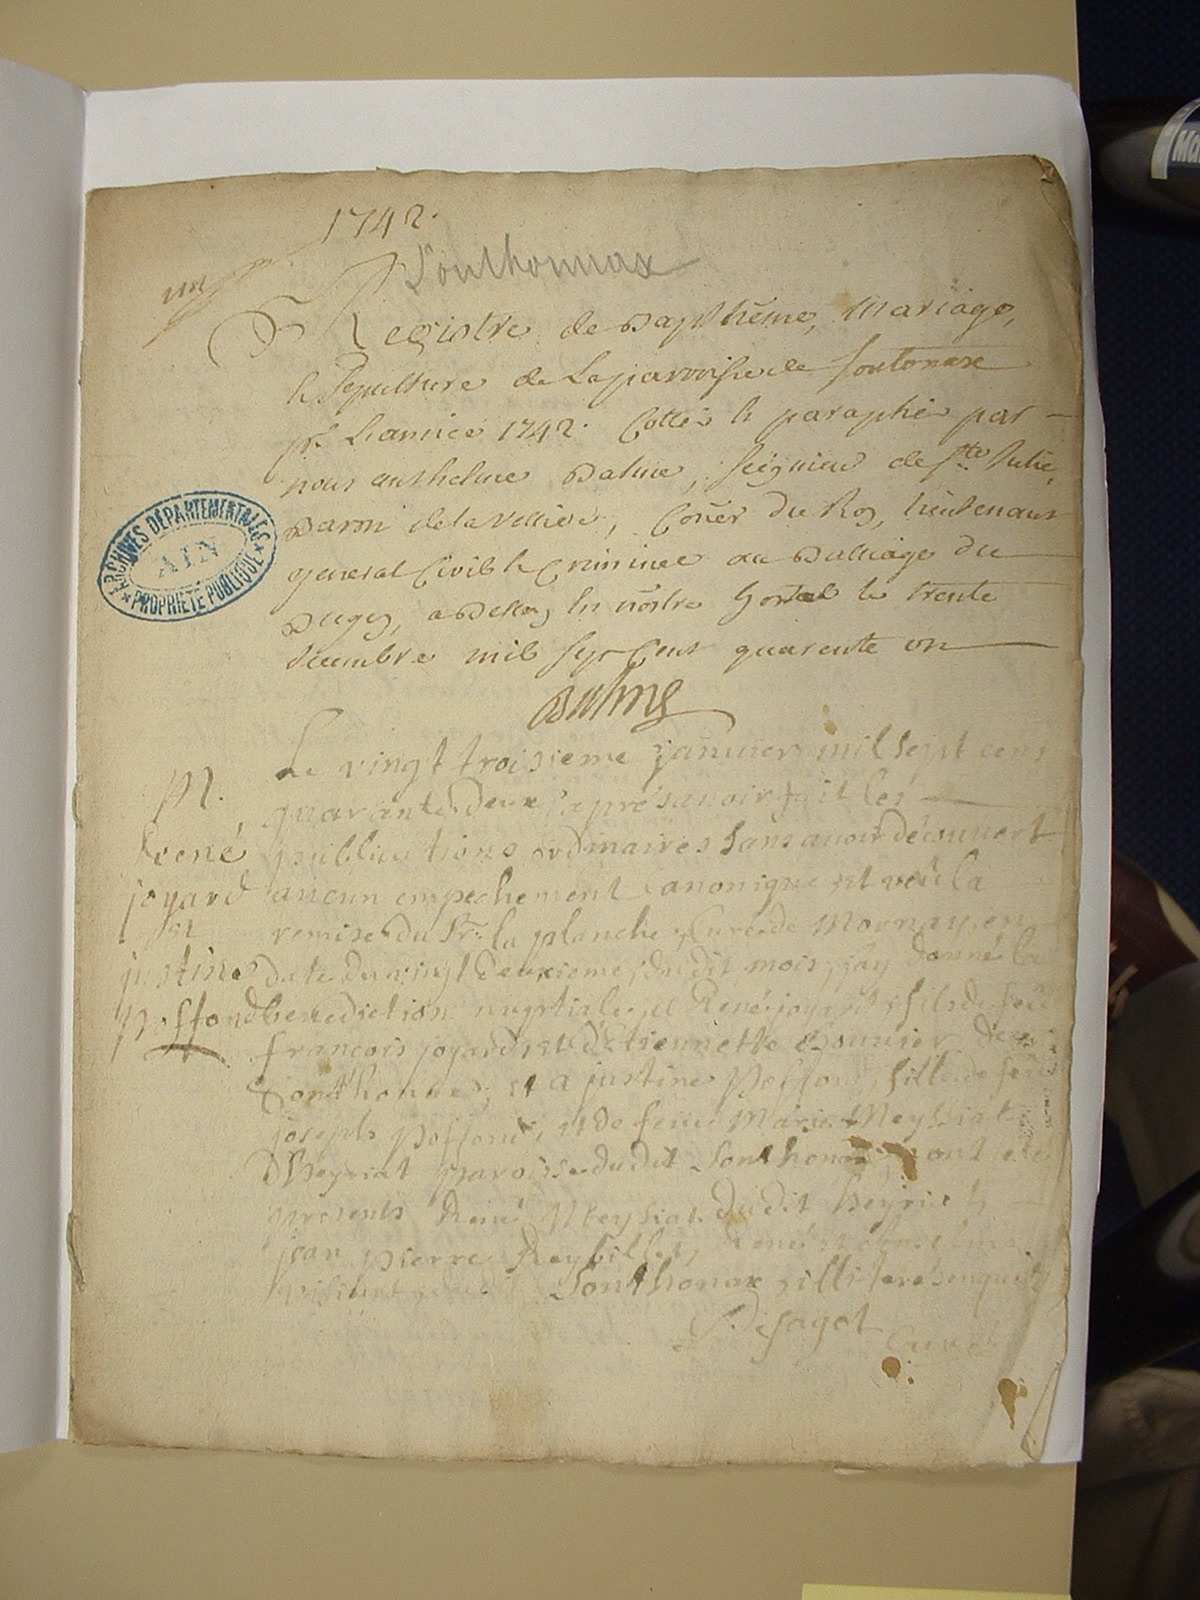 1742.
un
Sonthonnax
Registre de Baptheme, Mariage,
& Sepulture de La parroisse de Sontonaxe
pr Lannée 1742. Cotté & paraphé par
nous anthelme Balme, seigneur de Ste Julie,
Baron de la Velliere, Coner du Roy, Lieutenant
general Civil & Criminel au Balliage du
Bugey, a Belley en nôtre hotel le trente
decembre mil sept cent quarente un
Balme
ARCHIVES DÉPARTEMENTALES
AIN
PROPRIÉTÉ PUBLIQUE
M.
René
joyard
et
justine
Poffond
Le vingt troisieme janvier mil sept cens
quarante deux apres avoir fait les
publications ordinaires sans avoir découvert
aucun empechement canonique et veü la
remise du Sr. la planche Curé de Mornay, en
date du vingt deuxieme du dit mois, j'ay donné la
benediction nuptiale a René joyard fils de feu
francois joyard et d'Etiennette Bonnier de
Sonthonnax, et a justine Poffond, fille de feu
joseph Poffond, et de feüe Marie Meyssiat
d'heyriat paroisse du dit Sonthonax, ont été
presents René Meyssiat du dit heyriat,
jean pierre Reybillet, René
Sonthonax illiteres enquis
Desagot
Curé